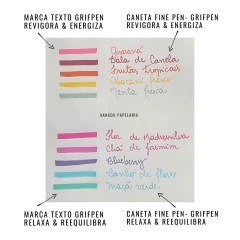 MARCA TEXTO GRIFPEN
REVIGORA & ENERGIZA
CANETA FINE PEN- GRIFPEN
REVIGORA & ENERGIZA
Guaraná
Bala de Canela
Frutas tropicais
Abacaxi fresco
Menta fresca
SANADO PAPELARIA
Flor de Madressilva
Chá de jasmim
Blueberry
Banho de flores
Maçã verde
MARCA TEXTO GRIFPEN
RELAXA & REEQUILIBRA
CANETA FINE PEN- GRIFPEN
RELAXA & REEQUILIBRA